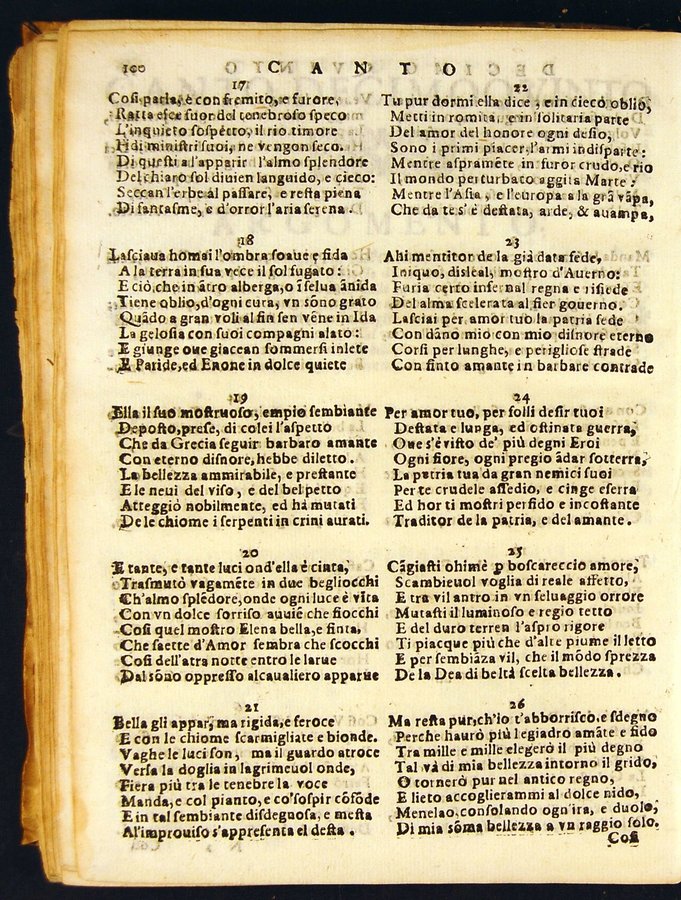 100 C A N T O
17
Cosi parla, e con fremito, e furore,
Ratta esce fuor del tenebroso speco
L'inquieto sospetto, il rio timore
Hà ministri suoi, ne vengon seco.
Di questi a l'apparir l'almo splendore
Del chiaro sol diuien languido, e cieco:
Seccan l'erbe al passare, e resta piena
Di fantasme, e d'orror l'aria serena
18
Lasciaua homai l'ombra soaue e fida
A la terra in sua vece il sol fugato:
E ciò, che in ãtro alberga, o ĩ selua ãnida
Tiene oblio, d'ogni cura, vn sõno grato
Quãdo a gran voli al fin sen vẽne in Ida
La gelosia con suoi compagni alato:
E giunge oue giacean sommersi inlete
E Paride, ed Enone in dolce quiete
19
Ella il suo mostruoso, empio sembiante
Deposto, prese, di colei l'aspetto
Che da Grecia seguir barbaro amante
Con eterno disnore, hebbe diletto.
La bellezza ammirabile, e prestante
E le neui del viso, e del bel petto
Atteggiò nobilmente, ed hà mutati
De le chiome i serpenti in crini aurati.
20
E tante, e tante luci ond'ella è cinta,
Trasmutò vagamẽte in due begliocchi
Ch'almo splẽdore, onde ogni luce è vita
Con vn dolce sorriso auuiẽ che fiocchi
Cosi quel mostro Elena bella, e finta,
Che saette d'Amor sembra che scocchi
Cosi dell'atra notte entro le larue
Dal sõno oppresso al caualiero apparue
21
Bella gli appar, ma rigida, e feroce
E con le chiome scarmigliate e bionde.
Vaghe le luci son, ma il guardo atroce
Versa la doglia in lagrimeuol onde,
Fiera più tra le tenebre la voce
Manda, e col pianto, e co' sospir cõfõde
E in tal sembiante disdegnosa, e mesta
Al'improuiso s'appresenta el desta.
22
Tu pur dormi ella dice, e in cieco oblio,
Metti in romita, e in solitaria parte
Del amor del honore ogni desio,
Sono i primi piacer, l'armi indisparte:
Mentre aspramẽte in furor crudo, e rio
Il mondo perturbato aggita Marte:
Mentre l'Asia, e l'europa a la grã vãpa,
Che da te s'è destata, arde, & auampa,
23
Ahi mentitor de la già data fede,
Iniquo, disleal, mostro d'Auerno:
Furia certo infernal regna e risiede
Del alma scelerata al fier gouerno.
Lasciai per amor tuo la patria sede
Con dãno mio con mio disnore eterno
Corsi per lunghe, e perigliose strade
Con finto amante in barbare contrade
24
Per amor tuo, per folli desir tuoi
Destata e lunga, ed ostinata guerra,
Oue s'è visto de' più degni Eroi
Ogni fiore, ogni pregio ãdar sotterra,
La patria tua da gran nemici suoi
Per te crudele assedio, e cinge e serra
Ed hor ti mostri perfido e incostante
Traditor de la patria, e del amante.
25
Cãgiasti ohimè p boscareccio amore,
Scambieuol voglia di reale affetto,
E tra vil antro in vn seluaggio orrore
Mutasti il luminoso e regio tetto
E del duro terren l'aspro rigore
Ti piacque più che d'alte piume il letto
E per sembiãza vil, che il mõdo sprezza
De la Dea di beltà scelta bellezza.
26
Ma resta pur, ch'io t'abborrisco, e sdegno
Perche haurò più legiadro amãte e fido
Tra mille e mille elegerò il più degno
Tal và di mia bellezza intorno il grido,
O tornerò pur nel antico regno,
E lieto accoglierammi al dolce nido,
Menelao, consolando ogn'ira, e duolo,
Di mia sõma bellezza a vn raggio solo.
Cosi